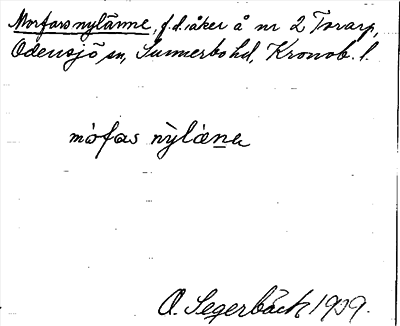 Morfarsnylänne, f.d. åker å nr 2 Torarp,
Odensjö sn, Sunnerbo hd, Kronob. l.
mòfas nỳlæna
O. Segerbäck 1939.